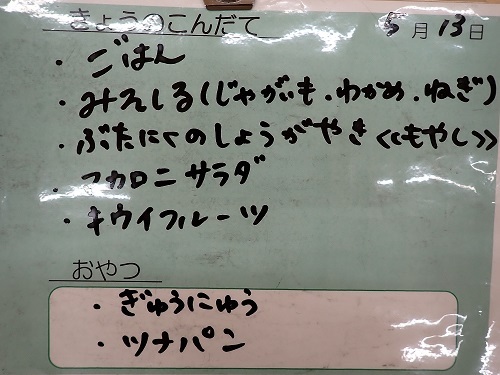 きょうのこんだて 5月13日
・ごはん
・みそしる(じゃがいも.わかめ.ねぎ)
・ぶたにくのしょうがやき《もやし》
・マカロニサラダ
・キウイフルーツ
おやつ
・ぎゅうにゅう
・ツナパン